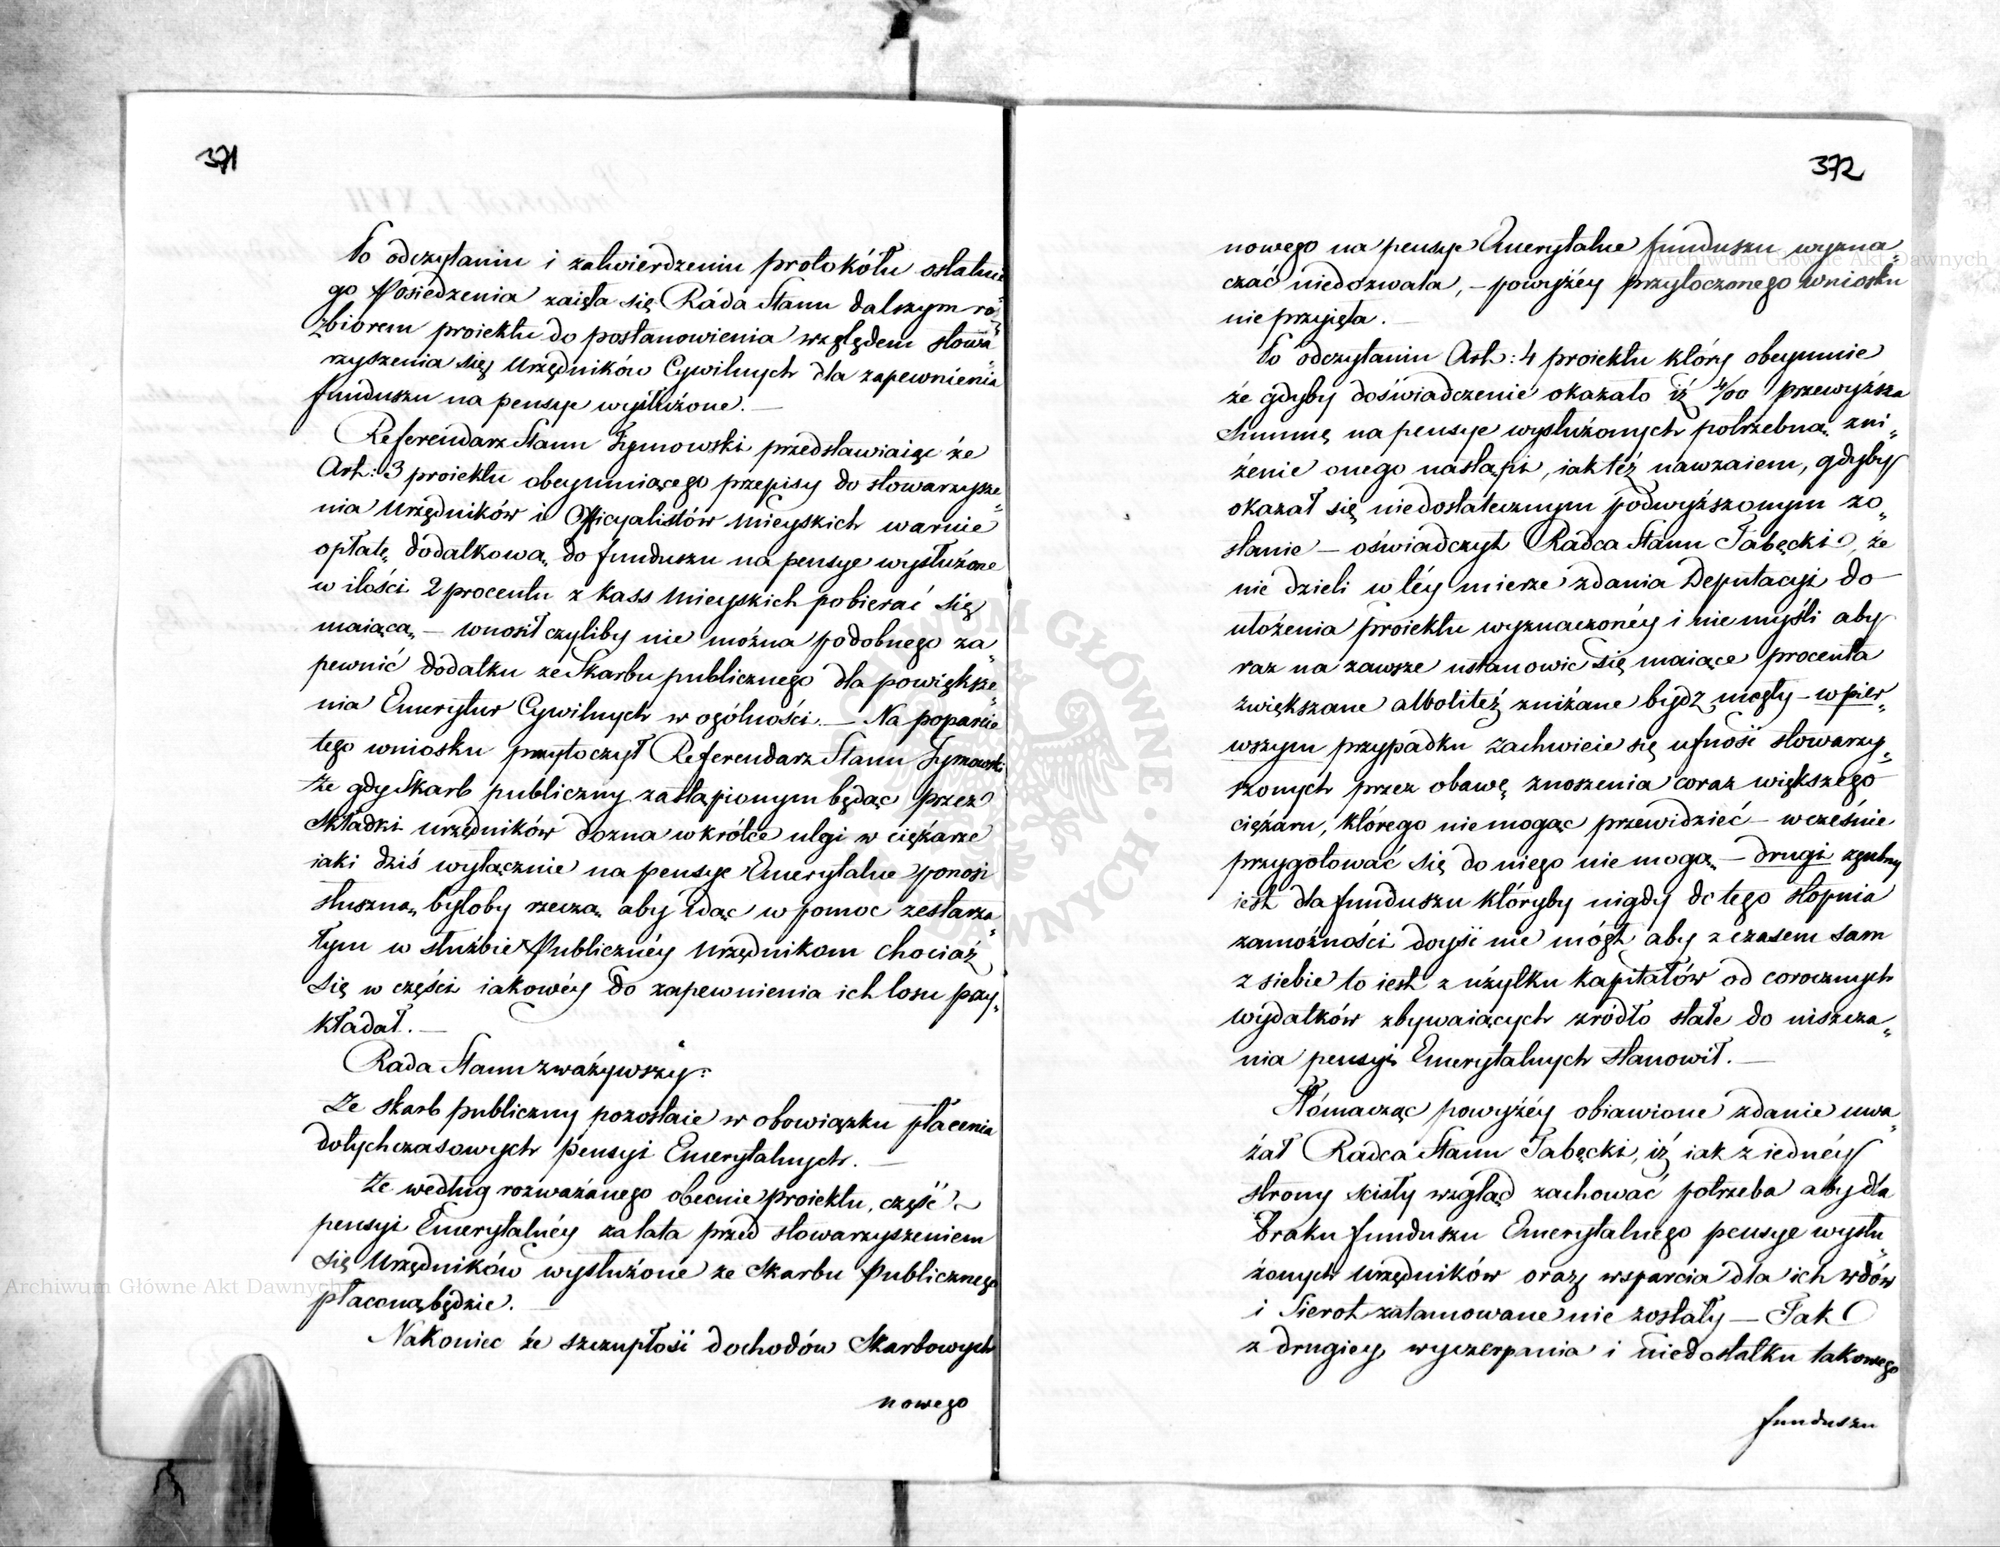 371
Po odczytaniu i zatwierdzeniu protokółu ostatnie
go Posiedzenia zaięła się Rada Stanu dalszym ro„
zbiorem proiektu do postanowienia względem stowa„
rzyszenia się Urzędników Cywilnych dla zapewnienia
funduszu na pensye wysłużone. —
Referendarz Stanu Szymowski przedstawiaiąc że
Art: 3 proiektu obeymuiącego przepisy do stowarzysze„
nia Urzędników i Officyalistów Mieyskich warnie
opłatę dodatkową do funduszu na pensye wysłużone
w ilości 2 procentu z kass Mieyskich pobierać się
maiącą — wnosił czyliby nie można podobnego za„
pewnić dodatku ze Skarbu publicznego dla powiększe„
nia Emerytur Cywilnych w ogólności. — Na poparcie
tego wniosku przytoczył Referendarz Stanu Szymowski
że gdy Skarb publiczny zastąpionym będąc przez
składki urzędników dozna wkrótce ulgi w ciężarze
iaki dziś wyłącznie na pensye Emerytalne ponosi
słuszną byłoby rzeczą aby idąc w pomoc zestarza„
łym w służbie Publicznéy Urzędnikom chociaż
się w części iakowéy do zapewnienia ich losu przy„
kładał. —
Rada Stanu zważywszy:
Że skarb publiczny pozostaie w obowiązku płacenia
dotychczasowych pensyi Emerytalnych. —
Że według rozważanego obecnie proiektu, część
pensyi Emerytalnéy za lata przed stowarzyszeniem
się Urzędników wysłużone ze Skarbu Publicznego
płaconą będzie. —
Nakoniec że szczupłość dochodów Skarbowych
nowego
372
nowego na pensye Emerytalne funduszu wyzna
czać niedozwala, — powyżéy przytoczonego wniosku
nie przyięła. —
Po odczytaniu Art: 4 proiektu który obeymuie
że gdyby doświadczenie okazało iż 4/00 przewyższa
Summę na pensye wysłużonych potrzebną, zni„
żenie onego nastąpi, iak też nawzaiem, gdyby
okazał się niedostatecznym podwyższonym zo„
stanie — oświadczył Radca Stanu Tabęcki, że
nie dzieli w téy mierze zdania Deputacyi do
ułożenia proiektu wyznaczonéy i nie myśli aby
raz na zawsze ustanowić się maiące procenta
zwiększane albo li też zniżane bydz mogły — w pier„
wszym przypadku zachwieie się ufność stowarzy„
szonych przez obawę znoszenia coraz większego
ciężaru, którego nie mogąc przewidzieć — wcześnie
przygotować się do niego nie mogą — drugi zgubny
iest dla funduszu któryby nigdy do tego stopnia
zamożności doyść nie mógł aby z czasem sam
z siebie to iest z użytku kapitałów od corocznych
wydatków zbywaiących zródło stałe do niszcza„
nia pensyi Emerytalnych stanowił. —
Tłómacząc powyżéy obiawione zdanie uwa„
żał Radca Stanu Tabęcki, iż iak z iednéy
strony ścisły wzgląd zachować potrzeba aby dla
braku funduszu Emerytalnego pensye wysłu„
żonych Urzędników oraz wsparcia dla ich wdów
i Sierot zatamowane nie zostały — Tak
z drugiey wyczerpania i niedostatku takowego
funduszu
Archiwum Główne Akt Dawnych
Archiwum Główne Akt Dawnych
ARCHIWUM GŁÓWNE AKT DAWNYCH